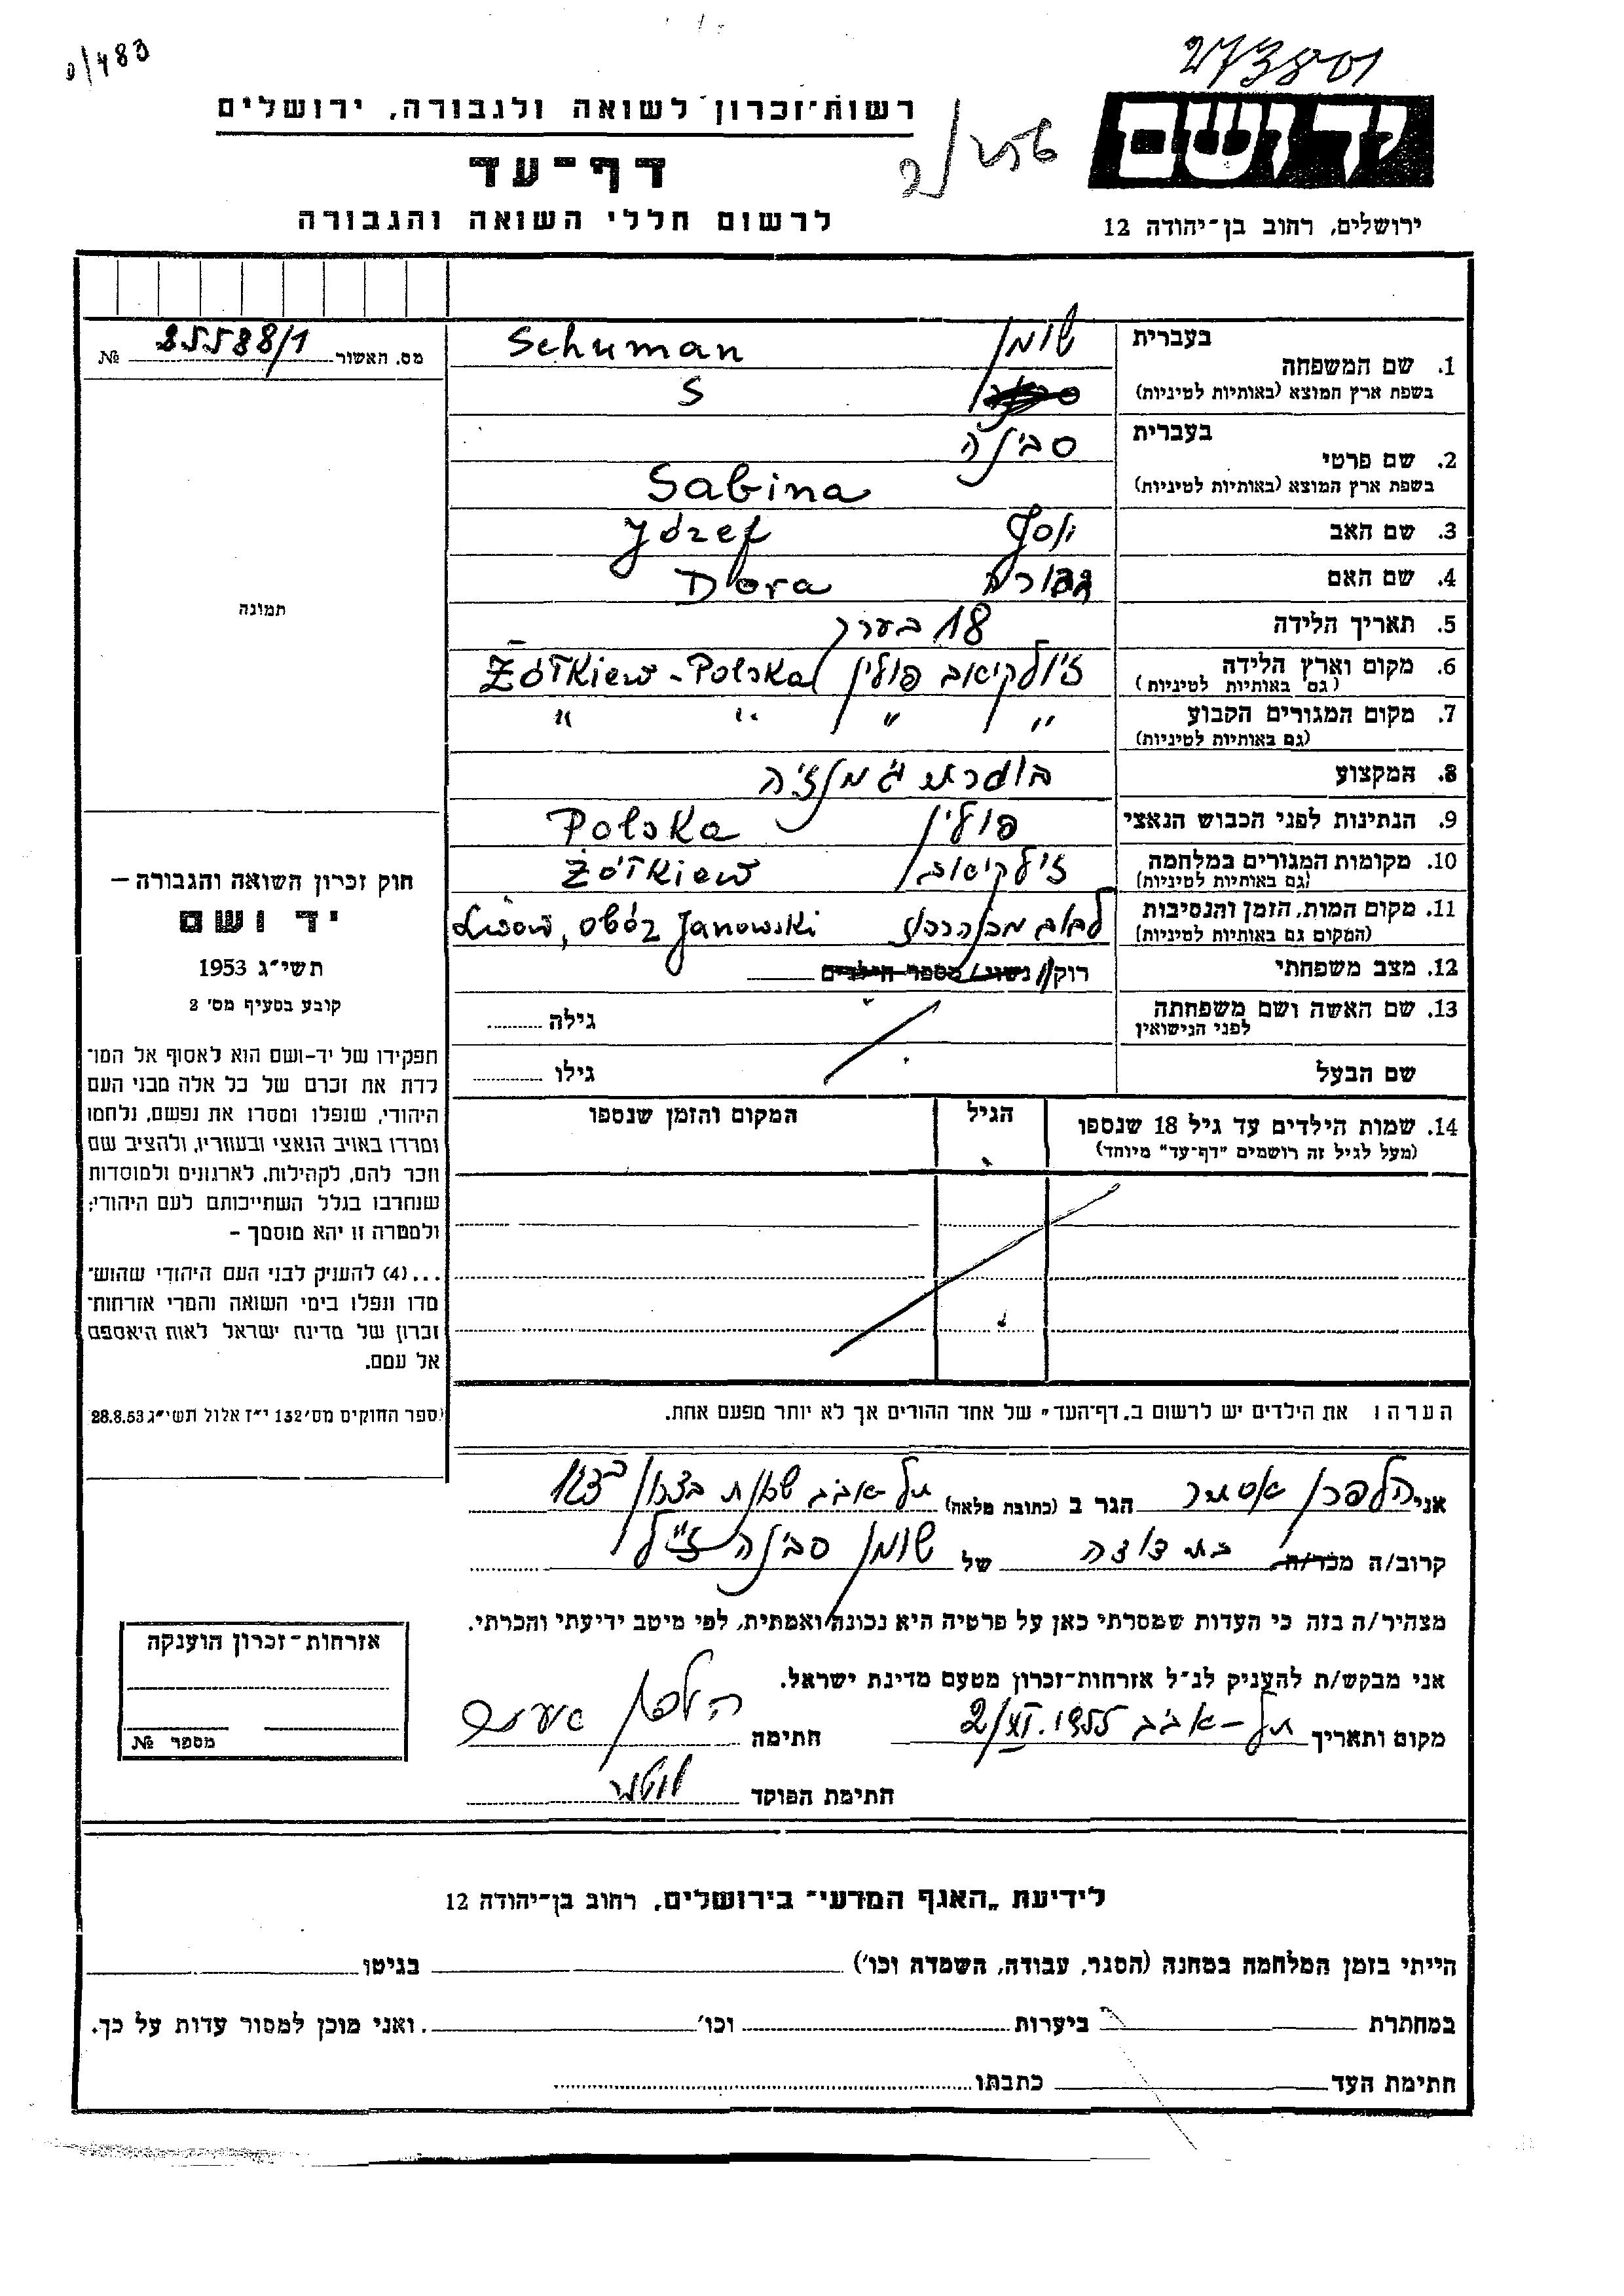 ס/483
273801
רשות־זכרון לשואה ולגבורה, ירושלים
יד ושם
דף־עד
לרשום חללי השואה והגבורה
ירושלים, רחוב בן־יהודה 12
מס. האשור 25588/1 №
בעברית
1. שם המשפחה שומן Schuman
בשפת ארץ המוצא (באותיות לטיניות) S
בעברית סבינה
2. שם פרטי
בשפת ארץ המוצא (באותיות לטיניות) Sabina
3. שם האב יוסף Józef
4. שם האם דבורה Dora
5. תאריך הלידה 18 בערך
6. מקום וארץ הלידה ז'ולקיאוב פולין Żółkiew - Polska
(גם באותיות לטיניות)
7. מקום המגורים הקבוע " " " "
(גם באותיות לטיניות)
8. המקצוע בוגרת גימנזיה
9. הנתינות לפני הכבוש הנאצי פולין Polska
10. מקומות המגורים במלחמה ז'ילקיאוב Żółkiew
(גם באותיות לטיניות)
11. מקום המות, הזמן והנסיבות לבוב Lwów, obóz Janowski
(המקום גם באותיות לטיניות)
12. מצב משפחתי רוק/ נשוי/ מספר הילדים
13. שם האשה ושם משפחתה גילה
לפני הנישואין
שם הבעל גילו
14. שמות הילדים עד גיל 18 שנספו הגיל המקום והזמן שנספו
(מעל לגיל זה רושמים "דף־עד" מיוחד)
הערה: את הילדים יש לרשום ב„דף־העד" של אחד ההורים אך לא יותר מפעם אחת.
תמונה
חוק זכרון השואה והגבורה –
יד ושם
תשי״ג 1953
קובע בסעיף מס' 2
תפקידו של יד-ושם הוא לאסוף אל המו־
לדת את זכרם של כל אלה מבני העם
היהודי, שנפלו ומסרו את נפשם, נלחמו
ומרדו באויב הנאצי ובעוזריו, ולהציב שם
וזכר להם, לקהילות, לארגונים ולמוסדות
שנחרבו בגלל השתייכותם לעם היהודי;
ולמטרה זו יהא מוסמך –
...(4) להעניק לבני העם היהודי שהוש־
מדו ונפלו בימי השואה והמרי אזרחות־
זכרון של מדינת ישראל לאות היאספם
אל עמם.
(ספר החוקים מס' 132 י״ז אלול תשי״ג 28.8.53
אני הלפרן אסתר הגר ב (כתובת מלאה) תל-אביב שכונת בצרון 123
קרוב/ה מכר/ה בת דודה של שומן סבינה ז"ל
מצהיר/ה בזה כי העדות שמסרתי כאן על פרטיה היא נכונה ואמתית, לפי מיטב ידיעתי והכרתי.
אני מבקש/ת להעניק לנ״ל אזרחות־זכרון מטעם מדינת ישראל.
מקום ותאריך תל-אביב 2/XI.1955 חתימה הלפרן אסתר
חתימת הפוקד
אזרחות־זכרון הוענקה
מספר №
לידיעת „האגף המדעי״ בירושלים, רחוב בן־יהודה 12
הייתי בזמן המלחמה במחנה (הסגר, עבודה, השמדה וכו') בגיטו
במחתרת ביערות וכו' ואני מוכן למסור עדות על כך.
חתימת העד כתבתו